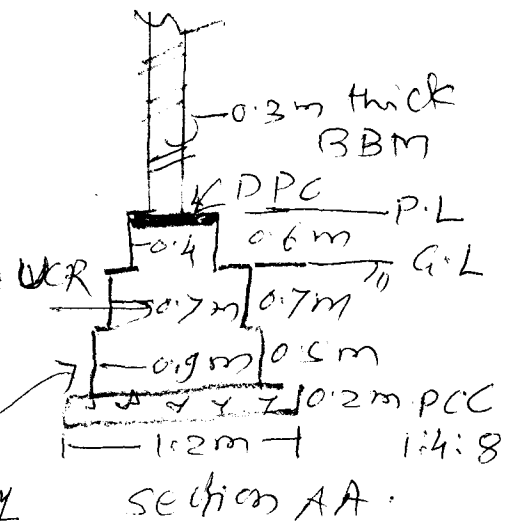 0.3m thick
BBM
DPC
P.L
0.4 0.6m
G.L
UCR
0.7m 0.7m
0.9m 0.5m
0.2m PCC
1.2m 1:4:8
Section AA.